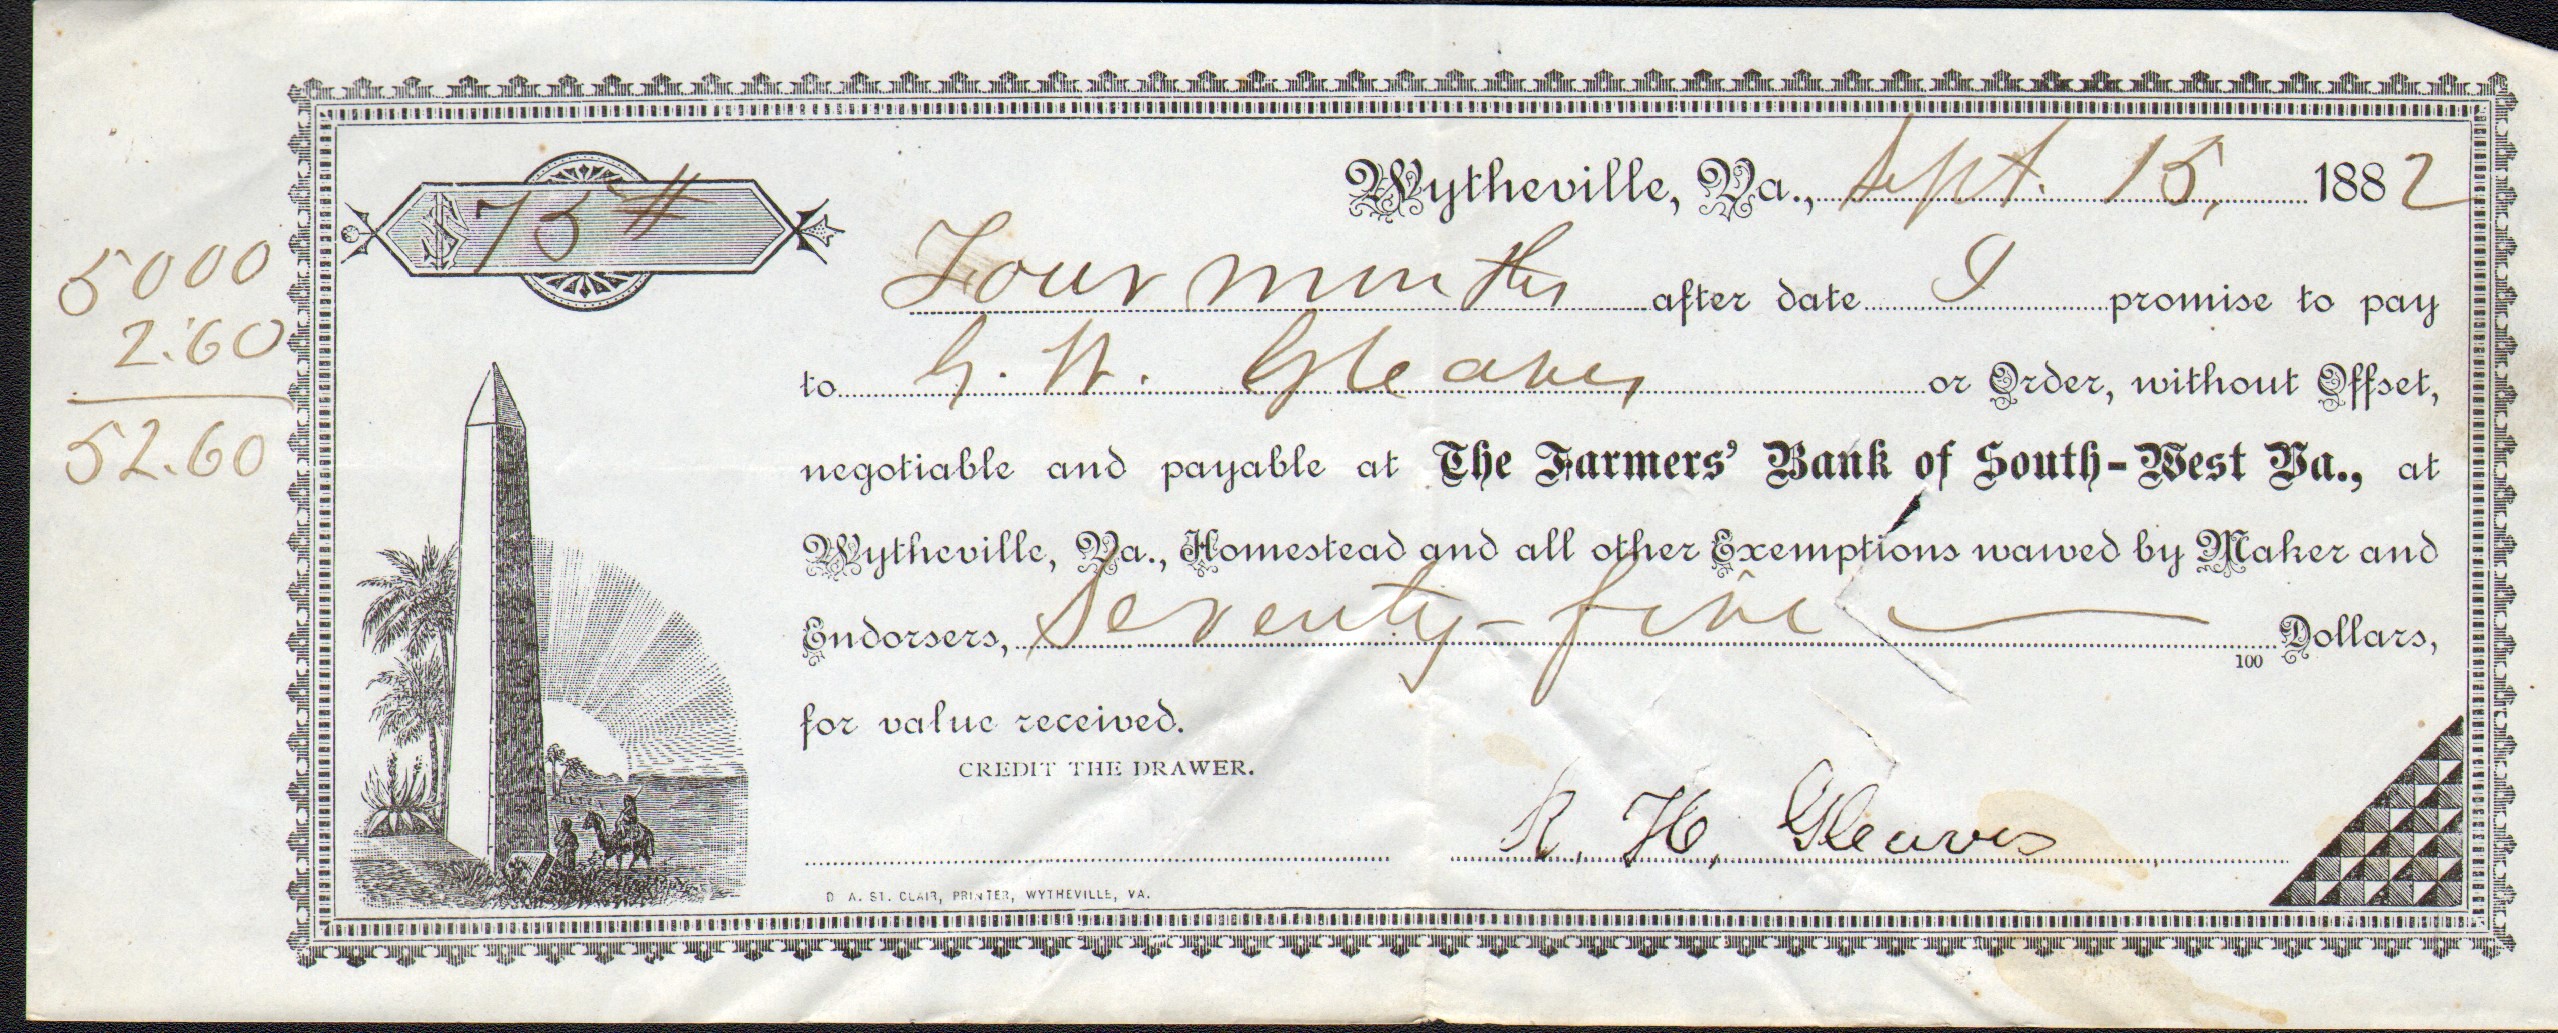 Wytheville, Va., Sept. 15, 1882
$75
Four months after date I promise to pay
to G. W. Gleaves or Order, without Offset,
negotiable and payable at The Farmers' Bank of South-West Va., at
Wytheville, Va., Homestead and all other Exemptions waived by Maker and
Endorsers, Seventy-five 100 Dollars,
for value received.
CREDIT THE DRAWER.
R. H. Gleaves
D A. ST. CLAIR, PRINTER, WYTHEVILLE, VA.
5000
2.60
52.60